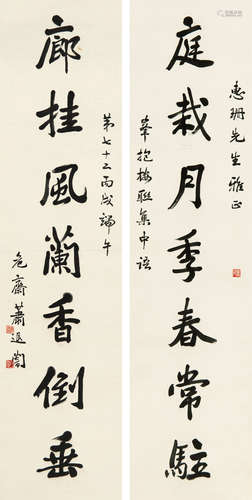 惠珊先生雅正
庭栽月季春常駐
集抱樸聯集中語
第七十二丙戌端午
廊挂風蘭香倒垂
危齋蕭退闇